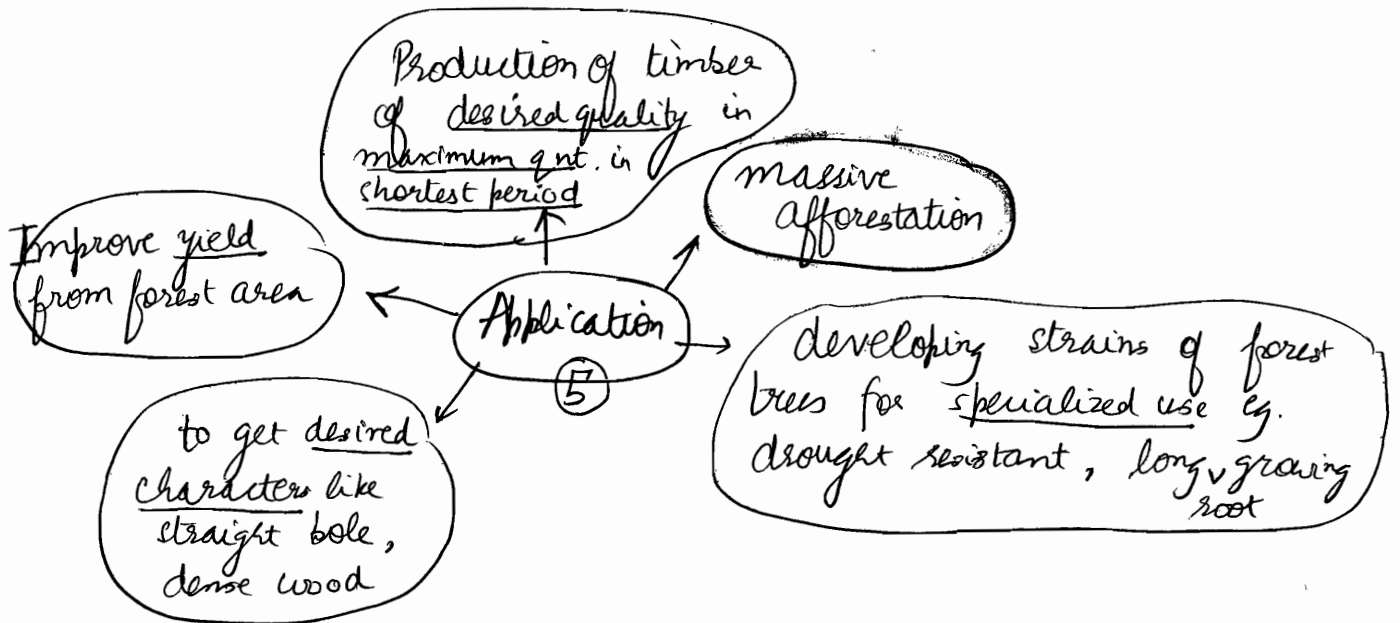 Production of timber
of desired quality in
maximum qnt. in
shortest period
massive
afforestation
Improve yield
from forest area
Application
5
developing strains of forest
trees for specialized use eg.
drought resistant, long growing
root
to get desired
characters like
straight bole,
dense wood